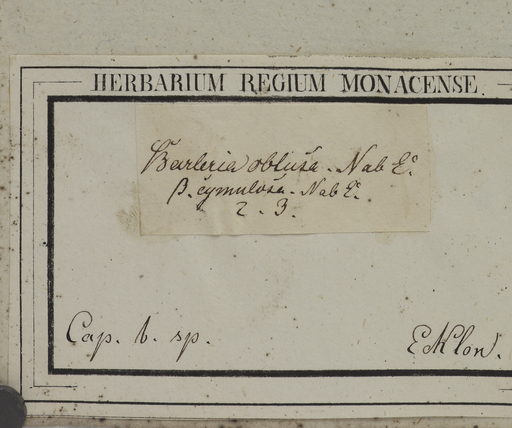 HERBARIUM REGIUM MONACENSE
Barleria obtusa. Nab E.
β. cymulosa. Nab E.
2. 3.
Cap. b. sp. Ecklon.